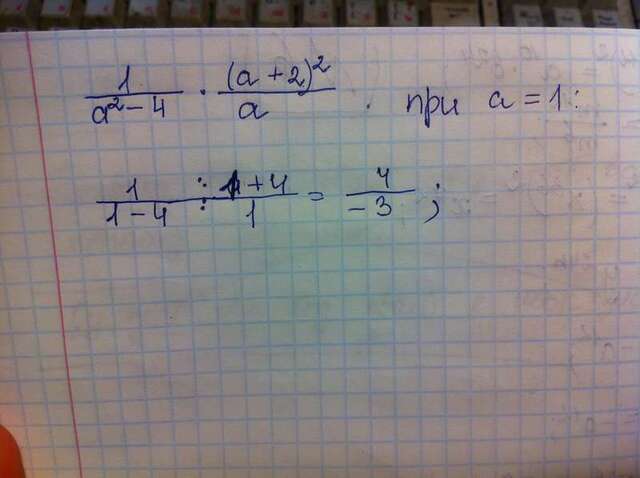 1/(a²-4) · (a+2)²/a . при a=1:
1/(1-4) : 1+4/1 = 4/-3 ;